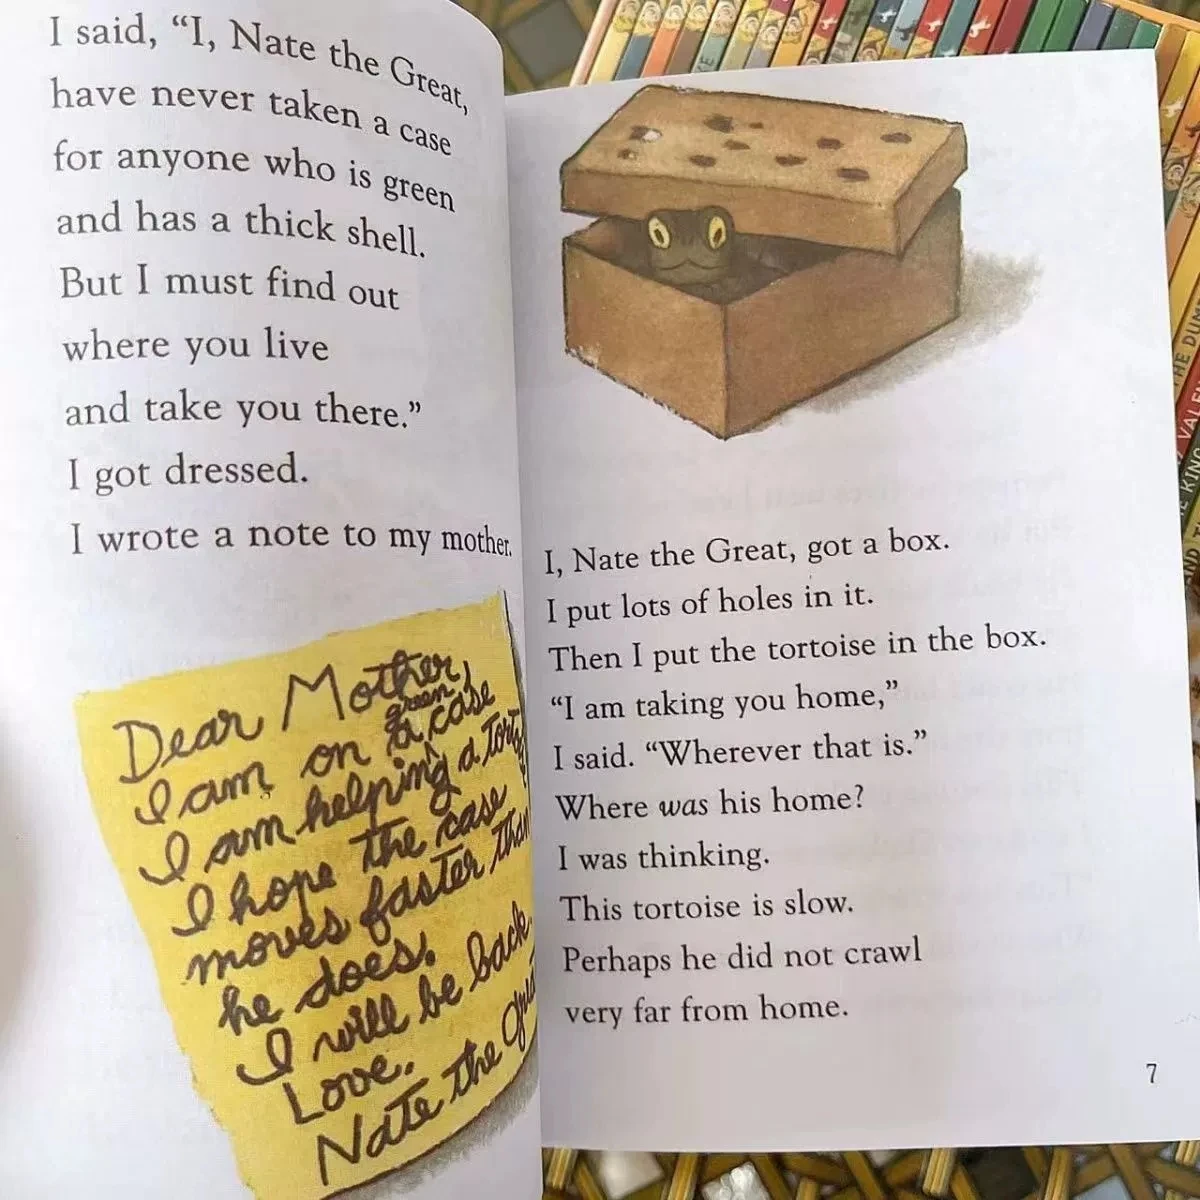 I said, “I, Nate the Great,
have never taken a case
for anyone who is green
and has a thick shell.
But I must find out
where you live
and take you there.”
I got dressed.
I wrote a note to my mother.
Dear Mother,
I am on a case
green
I am helping a
I hope the case
moves faster than
he does.
I will be back.
Love,
Nate the
I, Nate the Great, got a box.
I put lots of holes in it.
Then I put the tortoise in the box.
“I am taking you home,”
I said. “Wherever that is.”
Where was his home?
I was thinking.
This tortoise is slow.
Perhaps he did not crawl
very far from home.
7